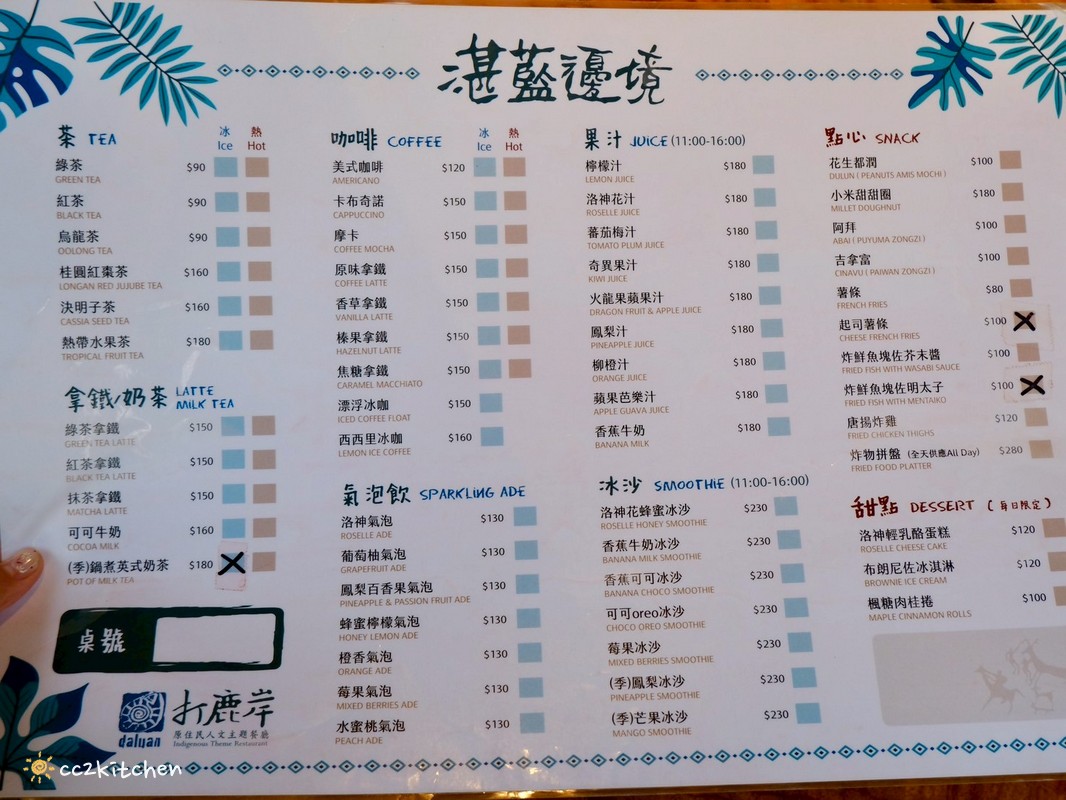 湛藍邊境
茶 TEA
冰 熱
Ice Hot
綠茶 $90
GREEN TEA
紅茶 $90
BLACK TEA
烏龍茶 $90
OOLONG TEA
桂圓紅棗茶 $160
LONGAN RED JUJUBE TEA
決明子茶 $160
CASSIA SEED TEA
熱帶水果茶 $180
TROPICAL FRUIT TEA
拿鐵/奶茶 LATTE
MILK TEA
綠茶拿鐵 $150
GREEN TEA LATTE
紅茶拿鐵 $150
BLACK TEA LATTE
抹茶拿鐵 $150
MATCHA LATTE
可可牛奶 $160
COCOA MILK
(季)鍋煮英式奶茶 $180
POT OF MILK TEA
桌號
打鹿岸
原住民人文主題餐廳
daluan Indigenous Theme Restaurant
cc2kitchen
咖啡 COFFEE
冰 熱
Ice Hot
美式咖啡 $120
AMERICANO
卡布奇諾 $150
CAPPUCCINO
摩卡 $150
COFFEE MOCHA
原味拿鐵 $150
COFFEE LATTE
香草拿鐵 $150
VANILLA LATTE
榛果拿鐵 $150
HAZELNUT LATTE
焦糖拿鐵 $150
CARAMEL MACCHIATO
漂浮冰咖 $150
ICED COFFEE FLOAT
西西里冰咖 $160
LEMON ICE COFFEE
氣泡飲 SPARKLING ADE
洛神氣泡 $130
ROSELLE ADE
葡萄柚氣泡 $130
GRAPEFRUIT ADE
鳳梨百香果氣泡 $130
PINEAPPLE & PASSION FRUIT ADE
蜂蜜檸檬氣泡 $130
HONEY LEMON ADE
橙香氣泡 $130
ORANGE ADE
莓果氣泡 $130
MIXED BERRIES ADE
水蜜桃氣泡 $130
PEACH ADE
果汁 JUICE (11:00-16:00)
檸檬汁 $180
LEMON JUICE
洛神花汁 $180
ROSELLE JUICE
蕃茄梅汁 $180
TOMATO PLUM JUICE
奇異果汁 $180
KIWI JUICE
火龍果蘋果汁 $180
DRAGON FRUIT & APPLE JUICE
鳳梨汁 $180
PINEAPPLE JUICE
柳橙汁 $180
ORANGE JUICE
蘋果芭樂汁 $180
APPLE GUAVA JUICE
香蕉牛奶 $180
BANANA MILK
冰沙 SMOOTHIE (11:00-16:00)
洛神花蜂蜜冰沙 $230
ROSELLE HONEY SMOOTHIE
香蕉牛奶冰沙 $230
BANANA MILK SMOOTHIE
香蕉可可冰沙 $230
BANANA CHOCO SMOOTHIE
可可oreo冰沙 $230
CHOCO OREO SMOOTHIE
莓果冰沙 $230
MIXED BERRIES SMOOTHIE
(季)鳳梨冰沙 $230
PINEAPPLE SMOOTHIE
(季)芒果冰沙 $230
MANGO SMOOTHIE
點心 SNACK
花生都潤 $100
DULUN ( PEANUTS AMIS MOCHI )
小米甜甜圈 $180
MILLET DOUGHNUT
阿拜 $100
ABAI ( PUYUMA ZONGZI )
吉拿富 $100
CINAVU ( PAIWAN ZONGZI )
薯條 $80
FRENCH FRIES
起司薯條 $100
CHEESE FRENCH FRIES
炸鮮魚塊佐芥末醬 $100
FRIED FISH WITH WASABI SAUCE
炸鮮魚塊佐明太子 $100
FRIED FISH WITH MENTAIKO
唐揚炸雞 $120
FRIED CHICKEN THIGHS
炸物拼盤 (全天供應All Day) $280
FRIED FOOD PLATTER
甜點 DESSERT (每日限定)
洛神輕乳酪蛋糕 $120
ROSELLE CHEESE CAKE
布朗尼佐冰淇淋 $120
BROWNIE ICE CREAM
楓糖肉桂捲 $100
MAPLE CINNAMON ROLLS